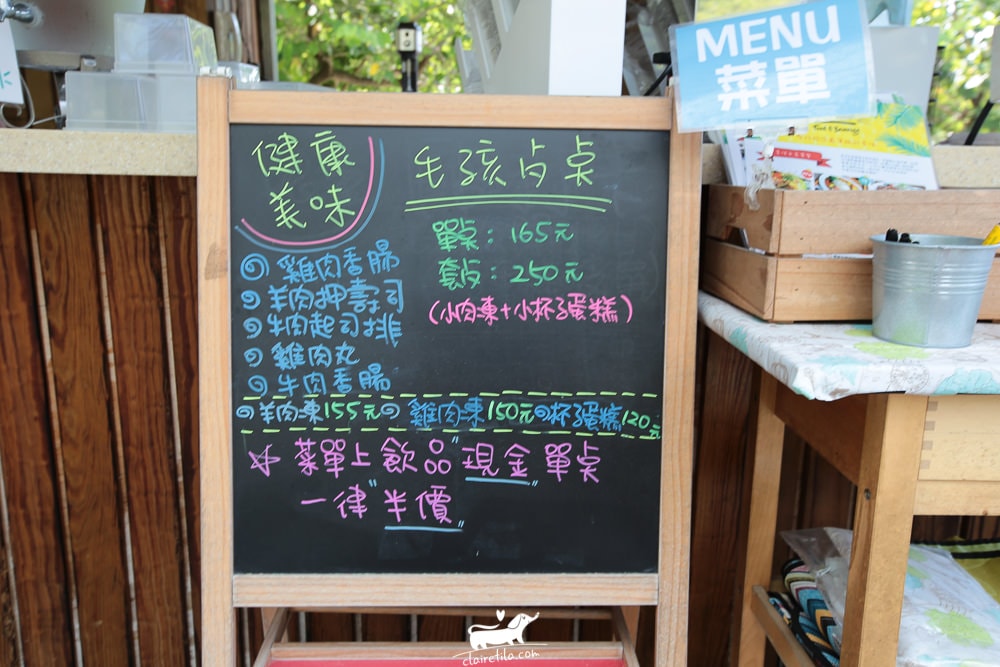 MENU
菜單
健康
美味
毛孩占桌
單桌：165元
套桌：250元
(小肉凍+小杯子蛋糕)
雞肉香腸
羊肉押壽司
牛肉起司排
雞肉丸
牛肉香腸
羊肉凍155元 雞肉凍150元 杯子蛋糕120元
☆菜單上飲品"現金"單點
一律"半價"
clairetila.com